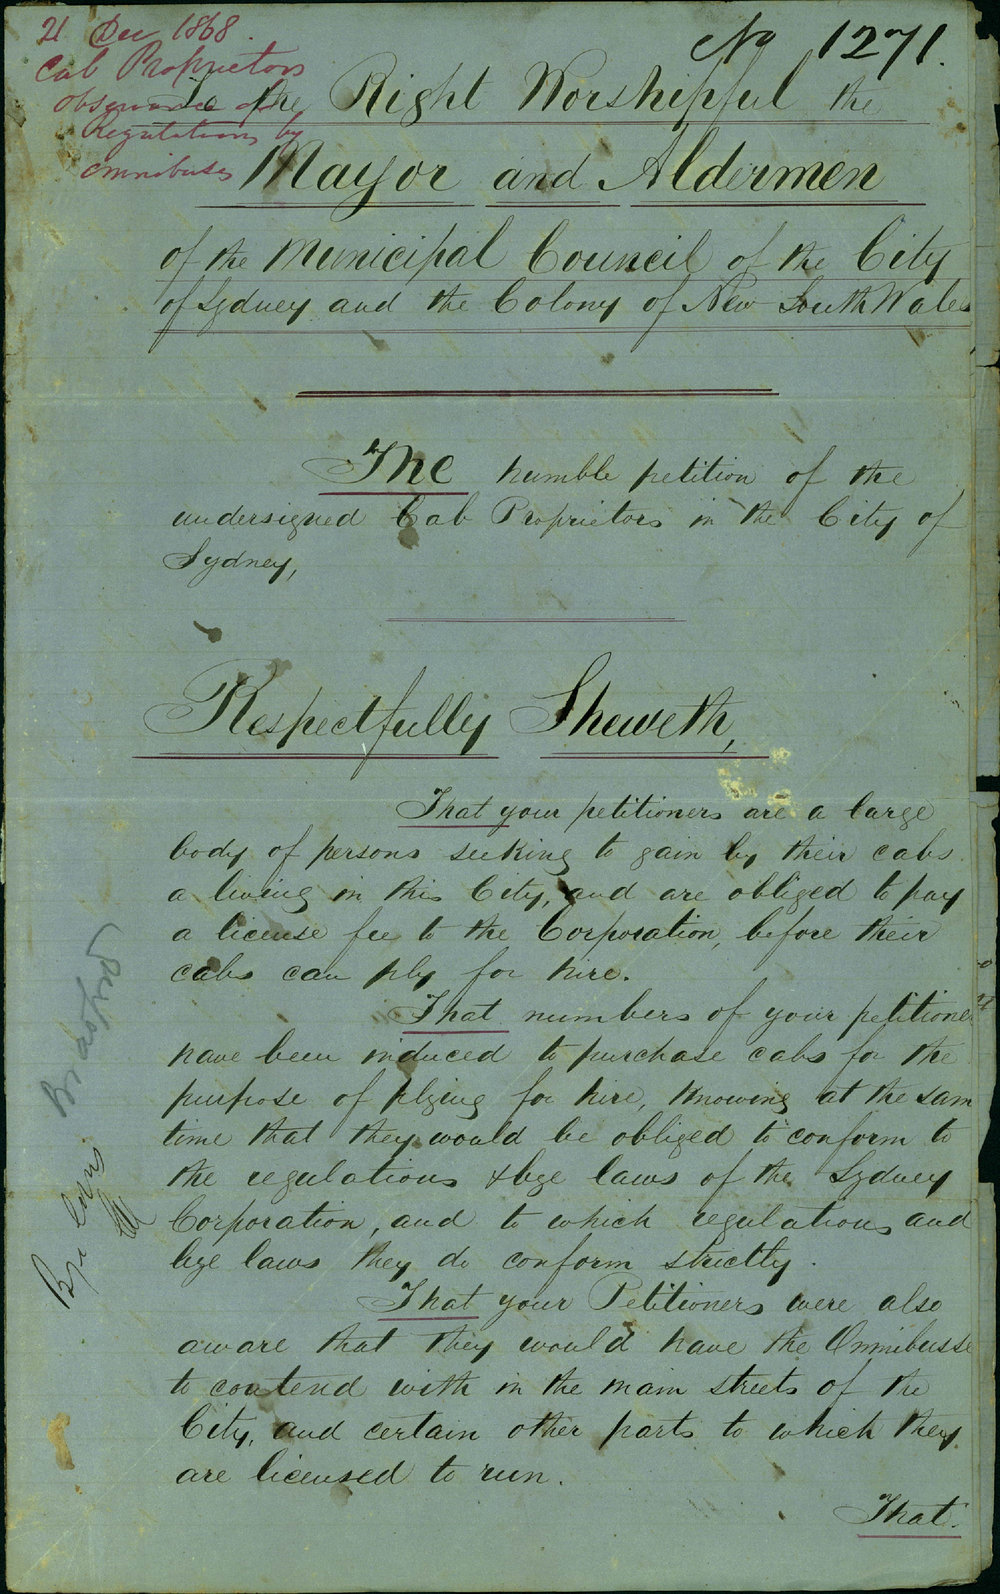 21 Dec 1868.
Cab Proprietors
Observance of
Regulations by
omnibuses
No 1271.
To the Right Worshipful the
Mayor and Aldermen
of the Municipal Council of the City
of Sydney and the Colony of New South Wales
The humble petition of the
undersigned Cab Proprietors in the City of
Sydney,
Respectfully Sheweth,
That your petitioners are a large
body of persons seeking to gain by their cabs
a living in this City, and are obliged to pay
a license fee to the Corporation, before their
cabs can ply for hire.
That numbers of your petitione
have been induced to purchase cabs for the
purpose of plying for hire, knowing at the sam
time that they would be obliged to conform to
the regulations & bye laws of the Sydney
Corporation, and to which regulations and
bye laws they do conform strictly.
That your Petitioners were also
aware that they would have the Omnibusse
to contend with in the main streets of the
City, and certain other parts to which they
are licensed to run.
That.
Bye laws